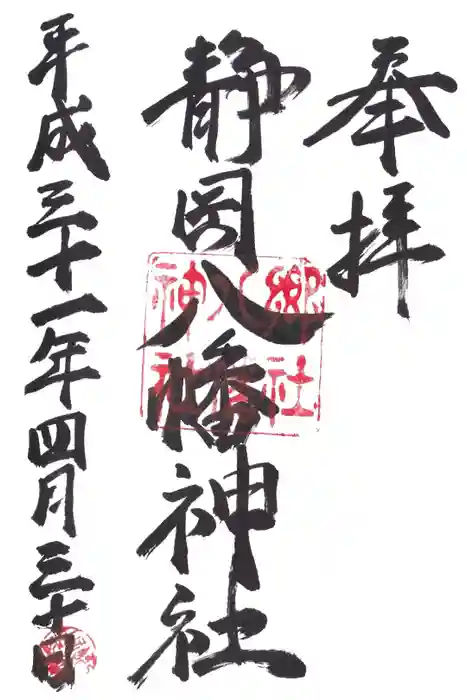 奉拝
静岡八幡神社
平成三十一年四月三十日